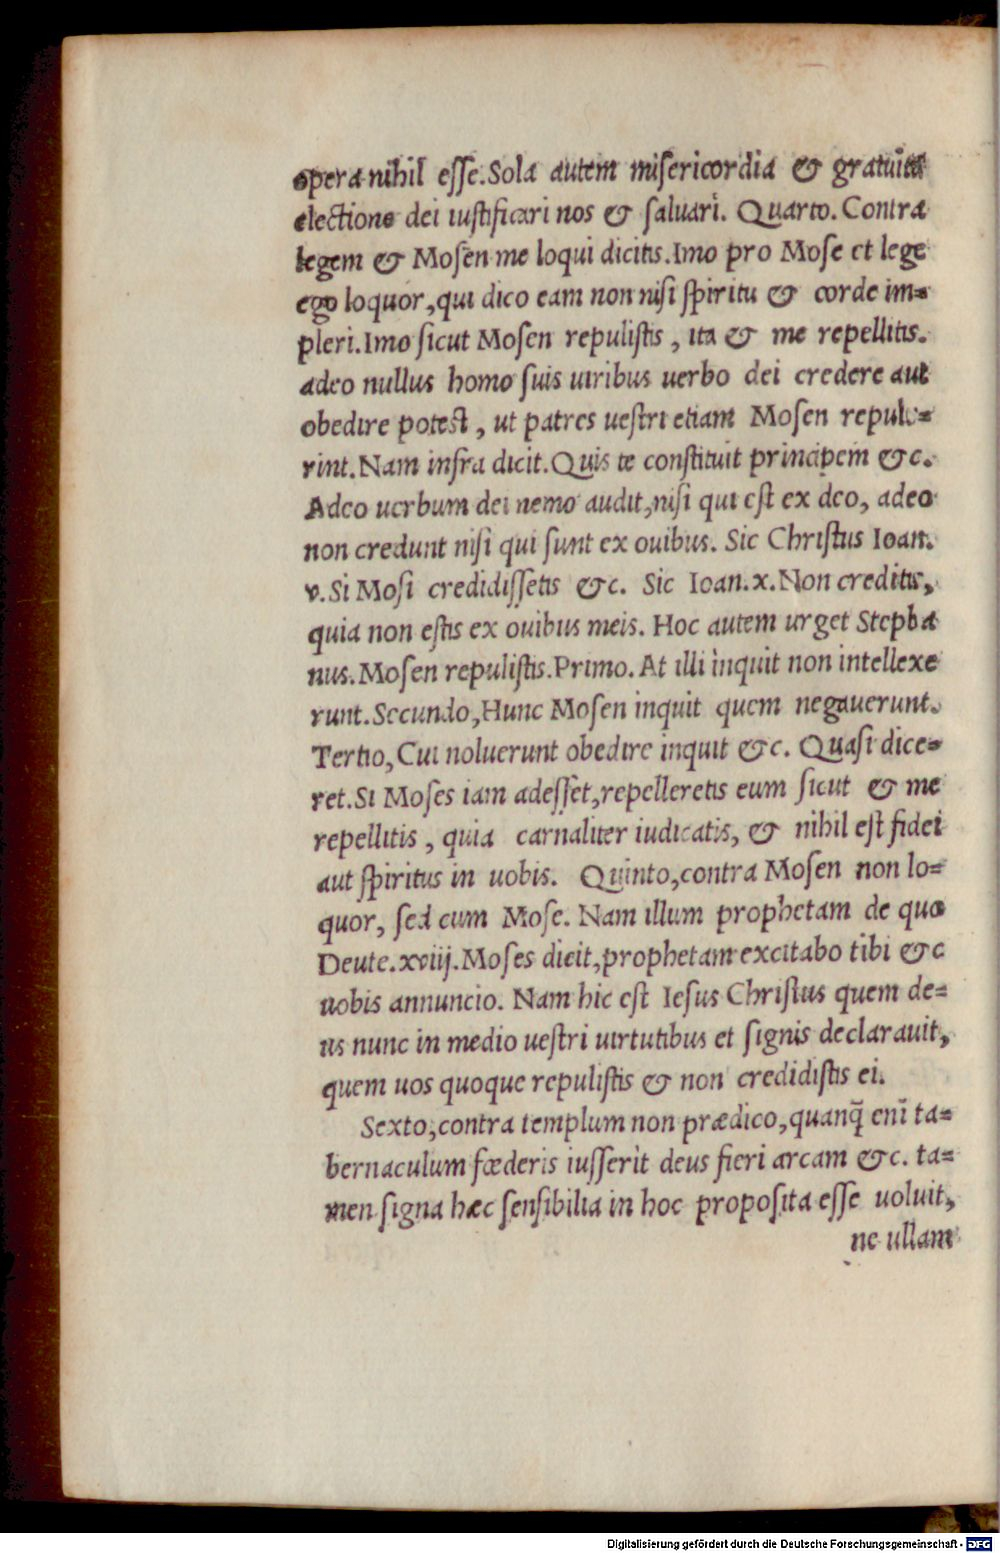 opera nihil esse. Sola autem misericordia & gratuita
electione dei iustificari nos & saluari. Quarto. Contra
legem & Mosen me loqui dicitis. Imo pro Mose et lege
ego loquor, qui dico eam non nisi spiritu & corde im=
pleri. Imo sicut Mosen repulistis, ita & me repellitis.
adeo nullus homo suis uiribus uerbo dei credere aut
obedire potest, ut patres uestri etiam Mosen repule=
rint. Nam infra dicit. Quis te constituit principem &c.
Adeo uerbum dei nemo audit, nisi qui est ex deo, adeo
non credunt nisi qui sunt ex ouibus. Sic Christus Ioan.
v. Si Mosi credidissetis &c. Sic Ioan. x. Non creditis,
quia non estis ex ouibus meis. Hoc autem urget Stepha
nus. Mosen repulistis. Primo. At illi inquit non intellexe
runt. Secundo, Hunc Mosen inquit quem negauerunt.
Tertio, Cui noluerunt obedire inquit &c. Quasi dice=
ret. Si Moses iam adesset, repelleretis eum sicut & me
repellitis, quia carnaliter iudicatis, & nihil est fidei
aut spiritus in uobis. Quinto, contra Mosen non lo=
quor, sed cum Mose. Nam illum prophetam de quo
Deute. xviij. Moses dicit, prophetam excitabo tibi &c
uobis annuncio. Nam hic est Iesus Christus quem de=
us nunc in medio uestri uirtutibus et signis declarauit,
quem uos quoque repulistis & non credidistis ei.
Sexto, contra templum non prædico, quanq̃ enĩ ta=
bernaculum fœderis iusserit deus fieri arcam &c. ta=
men signa hæc sensibilia in hoc proposita esse uoluit,
ne ullam
Digitalisierung gefördert durch die Deutsche Forschungsgemeinschaft - DFG